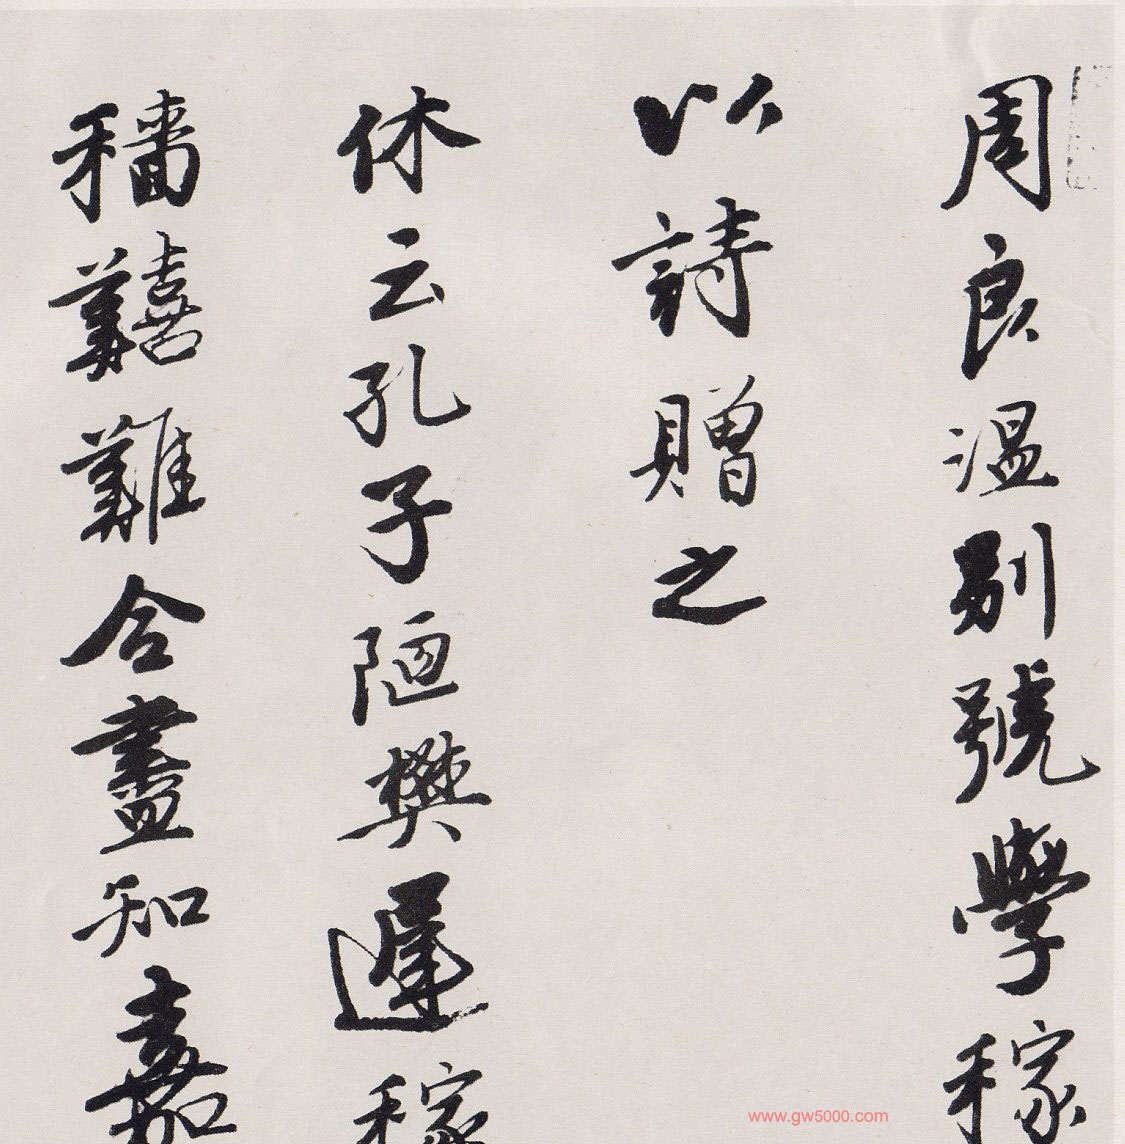 周良温別號學稼
以詩贈之
休云孔子陋樊遲稼
穡囏難合盡知嘉
www.gw5000.com